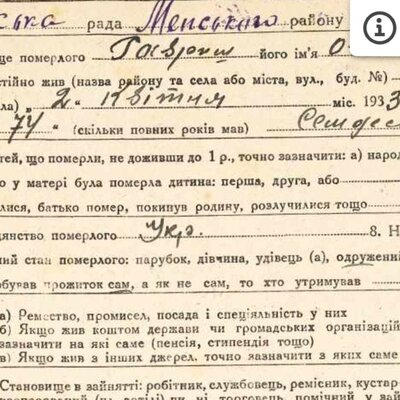 ська рада Менського району
ще померлого Гаврош його ім'я О
стійно жив (назва району та села або міста, вул., буд. №)
ла) „ 2 " Квітня міс. 1933
74 " (скільки повних років мав) Семдес
тей, що померли, не доживши до 1 р., точно зазначити: а) народ
о у матері була померла дитина: перша, друга, або
лися, батько помер, покинув родину, розлучилися тощо
дянство померлого Укр. 8. Н
ний стан померлого: парубок, дівчина, удівець (а), одружений
обував прожиток сам, а як не сам, то хто утримував
а) Ремество, промисел, посада і спеціяльність у них
б) Якщо жив коштом держави чи громадських організацій
зазначити на які саме (пенсія, стипендія тощо)
в) Якщо жив з інших джерел, точно зазначити з яких саме
Становище в зайнятті: робітник, службовець, ремісник, кустар-
ни торговець, помічний у